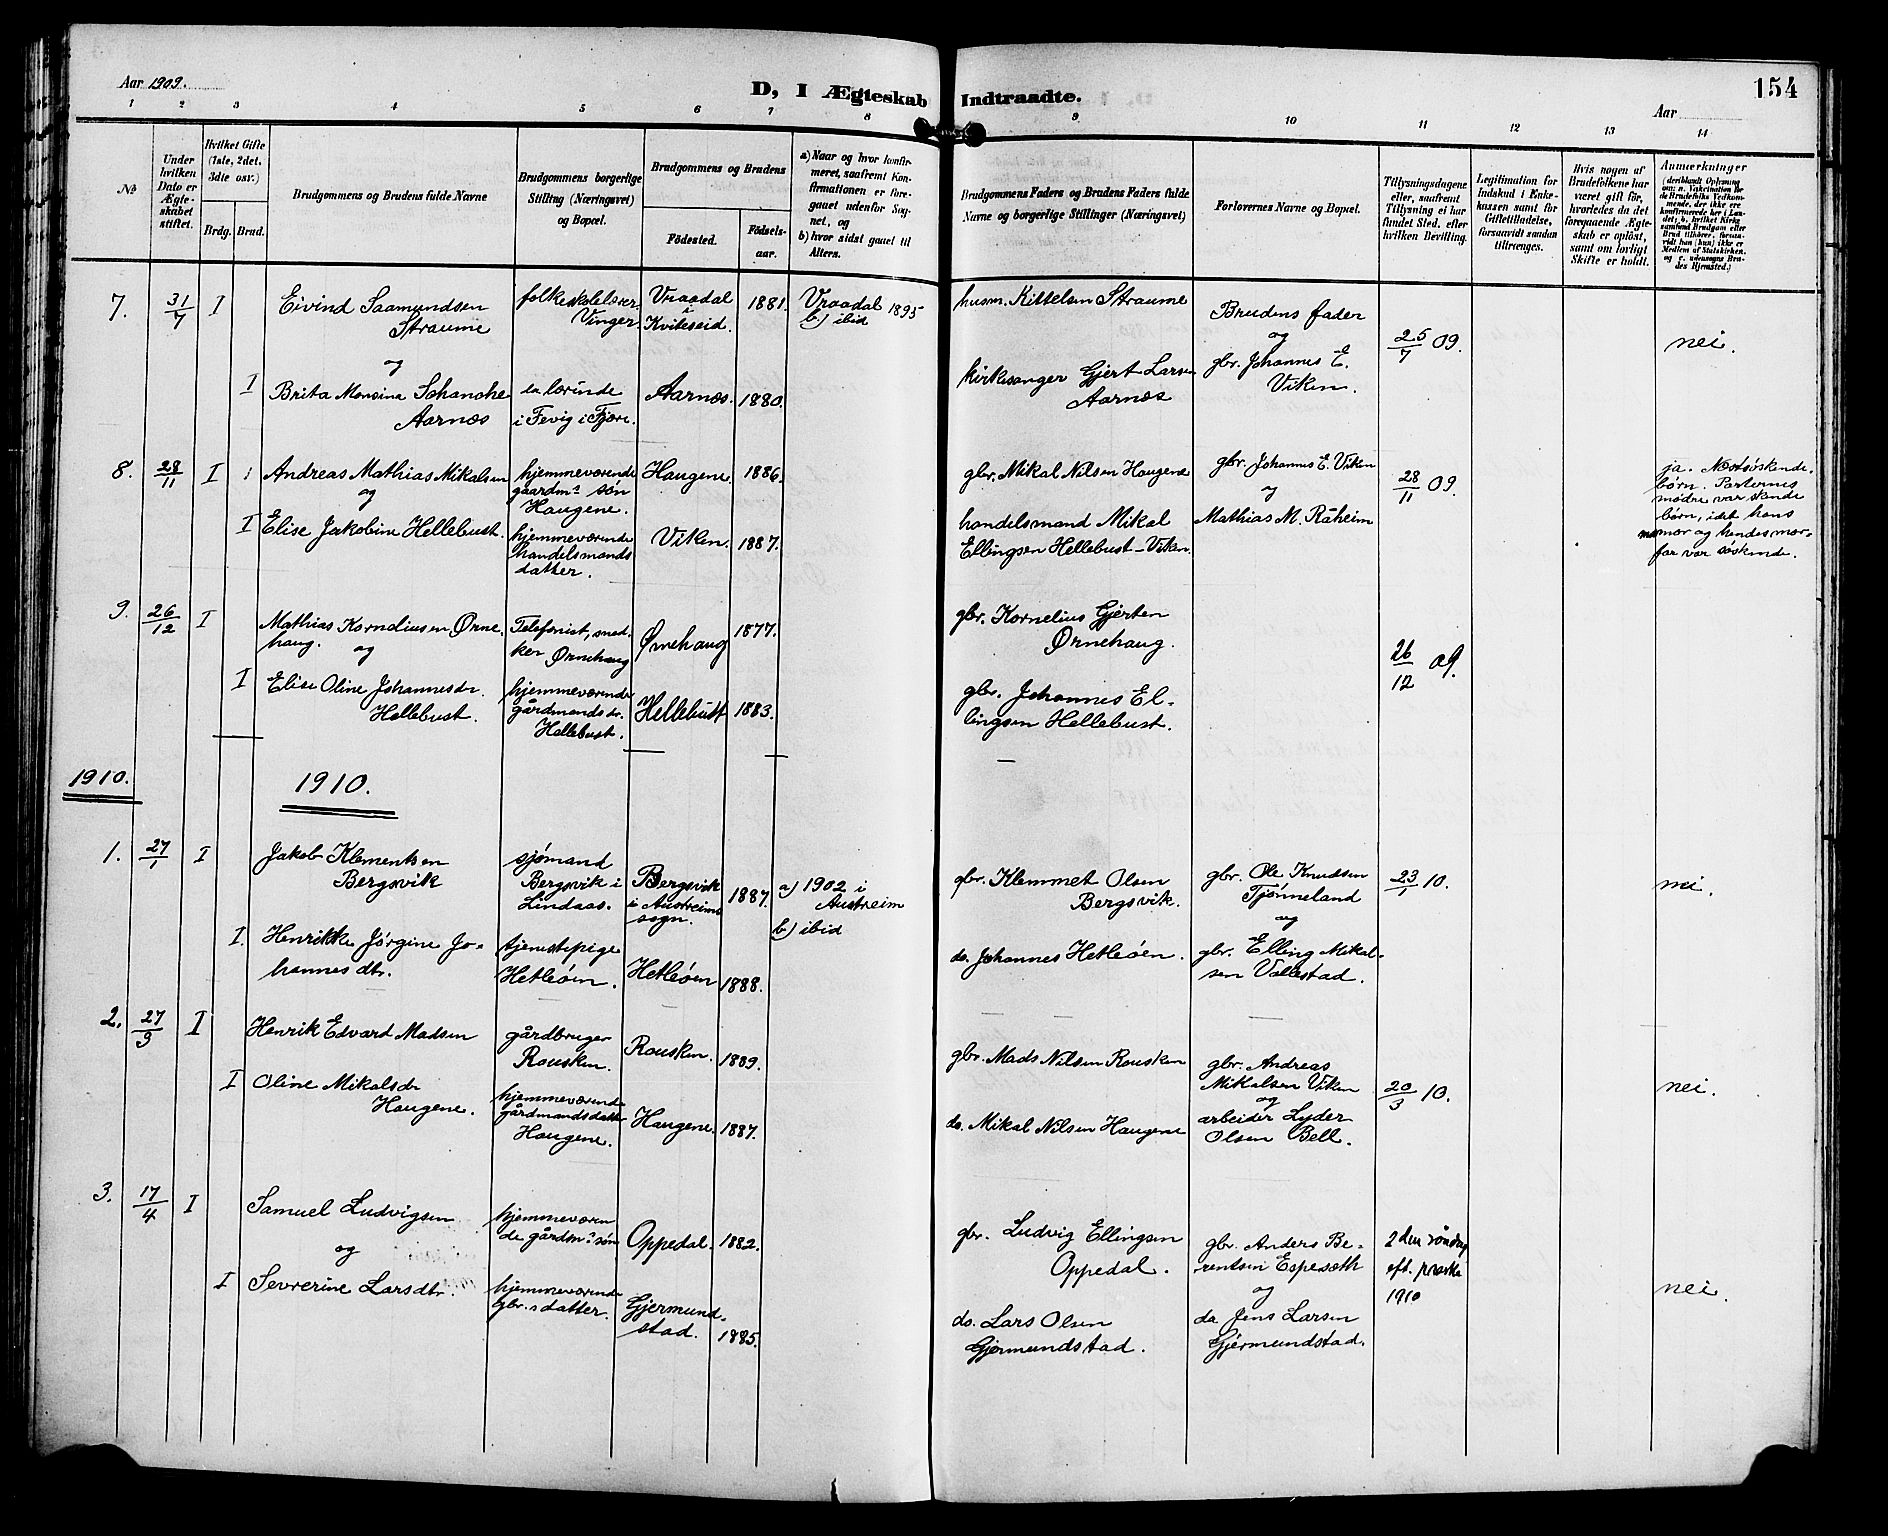 Aar 1909.
D, I Ægteskab Indtraadte.
154
Aar
1 2 3 4 5 6 7 8 9 10 11 12 13 14
No
Under hvilken Dato er Ægteskabet stiftet.
Hvilket Gifte (1ste, 2det, 3dte osv.)
Brdg. Brud.
Brudgommens og Brudens fulde Navne
Brudgommens borgerlige Stilling (Næringsvei) og Bopæl.
Brudgommens og Brudens
Födested.
Födselsaar.
a) Naar og hvor konfirmeret, saafremt Konfirmationen er foregaaet udenfor Sognet, og
b) hvor sidst gaaet til Alters.
Brudgommens Faders og Brudens Faders fulde Navne og borgerlige Stillinger (Næringsvei)
Forlovernes Navne og Bopæl.
Tillysningsdagene eller, saafremt Tillysning ei har fundet Sted, efter hvilken Bevilling.
Legitimation for Indskud i Enkekassen samt for Giftetilladelse, forsaavidt saadan tiltrænges.
Hvis nogen af Brudefolkene har været gift før, hvorledes da det foregaaende Ægteskab er opløst, samt om lovligt Skifte er holdt.
Anmærkninger
7. 31/7 I
Eivind Saamundsen
Straume
og
I Brita Monsina Schanche
Aarnæs
folkeskolelærer
Vinger
lærinde
i Fevig i Fjære.
Vraadal
i
Kviteseid.
1881.
Aarnæs. 1880.
Vraadal 1895
b) ibid
husm. Kittelsen Straume
kirkesanger Gjert Larsen
Aarnæs
Brudens fader
og
gbr. Johannes E.
Viken.
25/7 09.
nei.
8. 28/11 I
Andreas Mathias Mikalsen
og
I Elise Jakobine Hellebust.
hjemmeværende
gaardm's søn
Haugene.
hjemmeværende
handelsmands
datter.
Haugene. 1886.
Viken. 1887.
gbr. Mikal Nilsen Haugene
handelsmand Mikal
Ellingsen Hellebust-Viken.
gbr. Johannes E. Viken
og
Mathias M. Råheim
28/11 09.
ja. Næstsøskende-
børn. Parternes
mødre var skende
børn, idet hans
mormor og hendes mor-
far var søskende.
9. 26/12 I
Mathias Korneliussen Ørne-
haug. og
I Elise Oline Johannesdr.
Hellebust.
Telefonist, sned-
ker Ørnehaug
hjemmeværende
gårdmandsdr.
Hellebust.
Ørnehaug 1877.
Hellebust 1883.
gbr. Kornelius Gjerten
Ørnehaug.
gbr. Johannes El-
lingsen Hellebust.
26/12 09.
1910.
1910.
1. 27/1 I
Jakob Klementsen
Bergsvik
I. Henrikke Jørgine Jo-
hannesdtr.
sjømand
Bergsvik i
Lindaas.
tjenestepige
Hetleøen.
Bergsvik
i Austreim
sogn.
1887.
Hetleøen 1888.
a) 1902 i
Austreim
b) ibid
gbr. Klemmet Olsen
Bergsvik.
do. Johannes Hetleøen.
gbr. Ole Knudsen
Tjønneland
og
gbr. Elling Mikal-
sen Vallestad.
23/1 10.
nei.
2. 27/3 I
Henrik Edvard Madsen
I Oline Mikalsdr
Haugene.
gårdbruger
Rousken.
hjemmeværende
gårdmandsdatter
Haugene.
Rousken. 1889.
Haugene. 1887.
gbr. Mads Nilsen Rousken
do. Mikal Nilsen Haugene
gbr. Andreas
Mikalsen Viken
og
arbeider Lyder
Olsen Bell.
20/3 10.
nei.
3. 17/4 I
Samuel Ludvigsen
og
I Severine Larsdtr.
hjemmeværen
de gårdm's søn
hjemmeværende
gbr.s datter.
Oppedal. 1882.
Gjermund-
stad. 1885.
gbr. Ludvig Ellingsen
Oppedal.
do. Lars Olsen
Gjermundstad.
gbr. Anders Be-
rentsen Espeseth
og
do. Jens Larsen
Gjermundstad.
2den søndag
eft. påske
1910
nei.